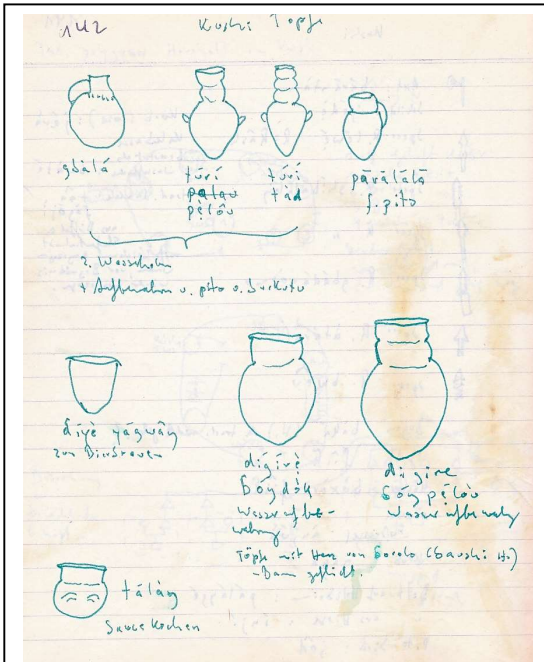 142 Kushi Töpfe
gbàlá
túrí
pèlóu
túrí
tàd
pārālālā
f. pito
z. Wasserholen
+ Aufbewahren v. pito o. burkutu
díyè yágwáŋ
zum Bierbrauen
dìgírè
ɓóŋdók
Wasseraufbe-
wahrung
digire
ɓóŋ pèlòu
Wasseraufbewahrg
Töpfe mit Harz von Gorolo (Baushi Hs.)
-Baum geflickt.
tálàŋ
Sauce kochen